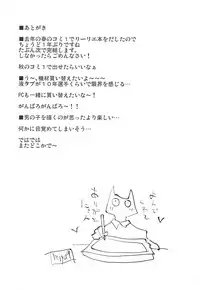 ■あとがき
■去年の春のコミ1でリーリエ本をだしたので
ちょうど1年ぶりですね
たぶん次で完結します。
しなかったらごめんなさい!
秋のコミ1で出せたらいいなぁ
■う〜、機材買い替えたいよ〜〜〜
液タブが10年選手くらいで限界を感じる…
PCも一緒に買い替えたいな〜!
がんばろがんばろ〜!!
■男の子を描くのが思ったより楽しい…
何かに目覚めてしまいそう…
ではでは
またどこかで〜